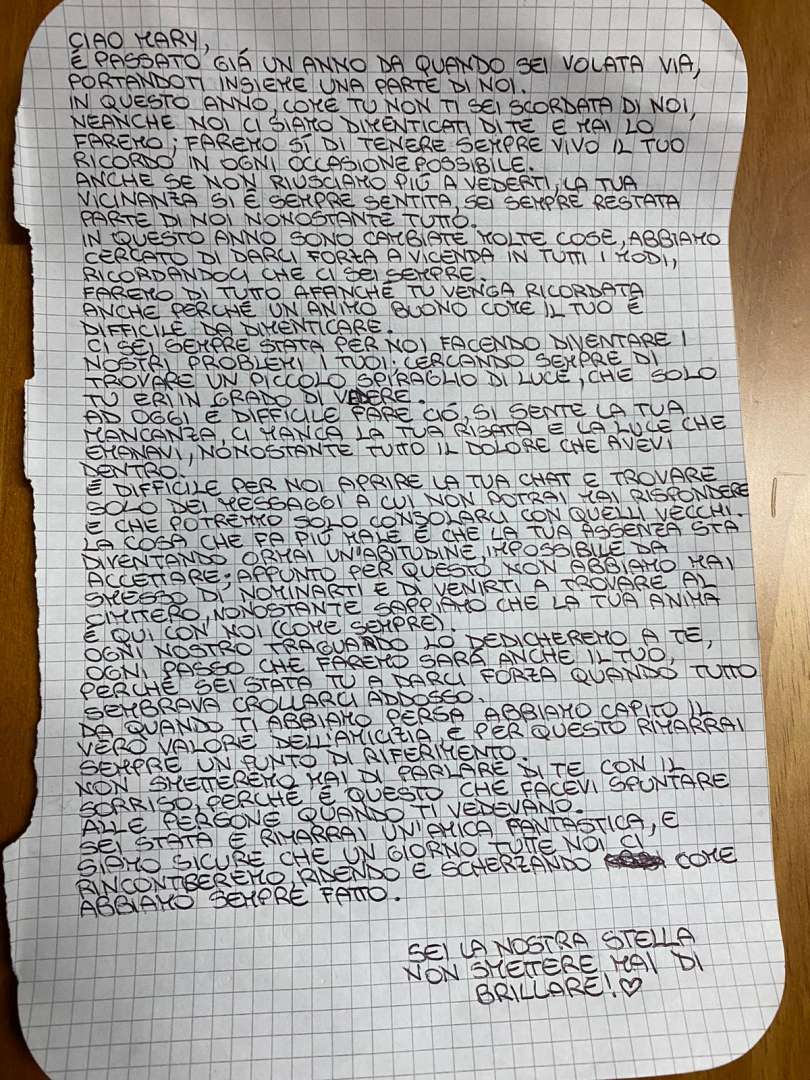 CIAO MARY,
È PASSATO GIÁ UN ANNO DA QUANDO SEI VOLATA VIA,
PORTANDOTI INSIEME UNA PARTE DI NOI.
IN QUESTO ANNO, COME TU NON TI SEI SCORDATA DI NOI,
NEANCHE NOI CI SIAMO DIMENTICATI DI TE E MAI LO
FAREMO; FAREMO SÌ DI TENERE SEMPRE VIVO IL TUO
RICORDO, IN OGNI OCCASIONE POSSIBILE.
ANCHE SE NON RIUSCIAMO PIÚ A VEDERTI, LA TUA
VICINANZA SI È SEMPRE SENTITA, SEI SEMPRE RESTATA
PARTE DI NOI NONOSTANTE TUTTO.
IN QUESTO ANNO SONO CAMBIATE MOLTE COSE, ABBIAMO
CERCATO DI DARCI FORZA A VICENDA IN TUTTI I MODI,
RICORDANDOCI CHE CI SEI SEMPRE.
FAREMO DI TUTTO AFANCHÉ TU VENGA RICORDATA
ANCHE PERCHÉ UN ANIMO BUONO COME IL TUO È
DIFFICILE DA DIMENTICARE.
CI SEI SEMPRE STATA PER NOI FACENDO DIVENTARE I
NOSTRI PROBLEMI I TUOI: CERCANDO SEMPRE DI
TROVARE UN PICCOLO SPIRAGLIO DI LUCE, CHE SOLO
TU ERI IN GRADO DI VEDERE.
AD OGGI È DIFFICILE FARE CIÓ, SI SENTE LA TUA
MANCANZA, CI MANCA LA TUA RISATA E LA LUCE CHE
EMANAVI, NONOSTANTE TUTTO IL DOLORE CHE AVEVI
DENTRO.
È DIFFICILE PER NOI APRIRE LA TUA CHAT E TROVARE
SOLO DEI MESSAGGI A CUI NON POTRAI MAI RISPONDERE
E CHE POTREMMO SOLO CONSOLARCI CON QUELLI VECCHI.
LA COSA CHE FA PIÚ MALE È CHE LA TUA ASSENZA STA
DIVENTANDO ORMAI UN'ABITUDINE IMPOSSIBILE DA
ACCETTARE; APPUNTO PER QUESTO NON ABBIAMO MAI
SMESSO DI NOMINARTI E DI VENIRTI A TROVARE AL
CIMITERO, NONOSTANTE SAPPIAMO CHE LA TUA ANIMA
È QUI CON NOI (COME SEMPRE).
OGNI NOSTRO TRAGUARDO LO DEDICHEREMO A TE,
OGNI PASSO CHE FAREMO SARÁ ANCHE IL TUO,
PERCHÉ SEI STATA TU A DARCI FORZA QUANDO TUTTO
SEMBRAVA CROLLARCI ADDOSSO.
DA QUANDO TI ABBIAMO PERSA ABBIAMO CAPITO IL
VERO VALORE DELL'AMICIZIA E PER QUESTO RIMARRAI
SEMPRE UN PUNTO DI RIFERIMENTO.
NON SMETTEREMO MAI DI PARLARE DI TE CON IL
SORRISO, PERCHÉ È QUESTO CHE FACEVI SPUNTARE
ALLE PERSONE QUANDO TI VEDEVANO.
SEI STATA E RIMARRAI UN'AMICA FANTASTICA, E
SIAMO SICURE CHE UN GIORNO TUTTE NOI CI
RINCONTREREMO, RIDENDO E SCHERZANDO COME
ABBIAMO SEMPRE FATTO.
SEI LA NOSTRA STELLA
NON SMETTERE MAI DI
BRILLARE! ♡